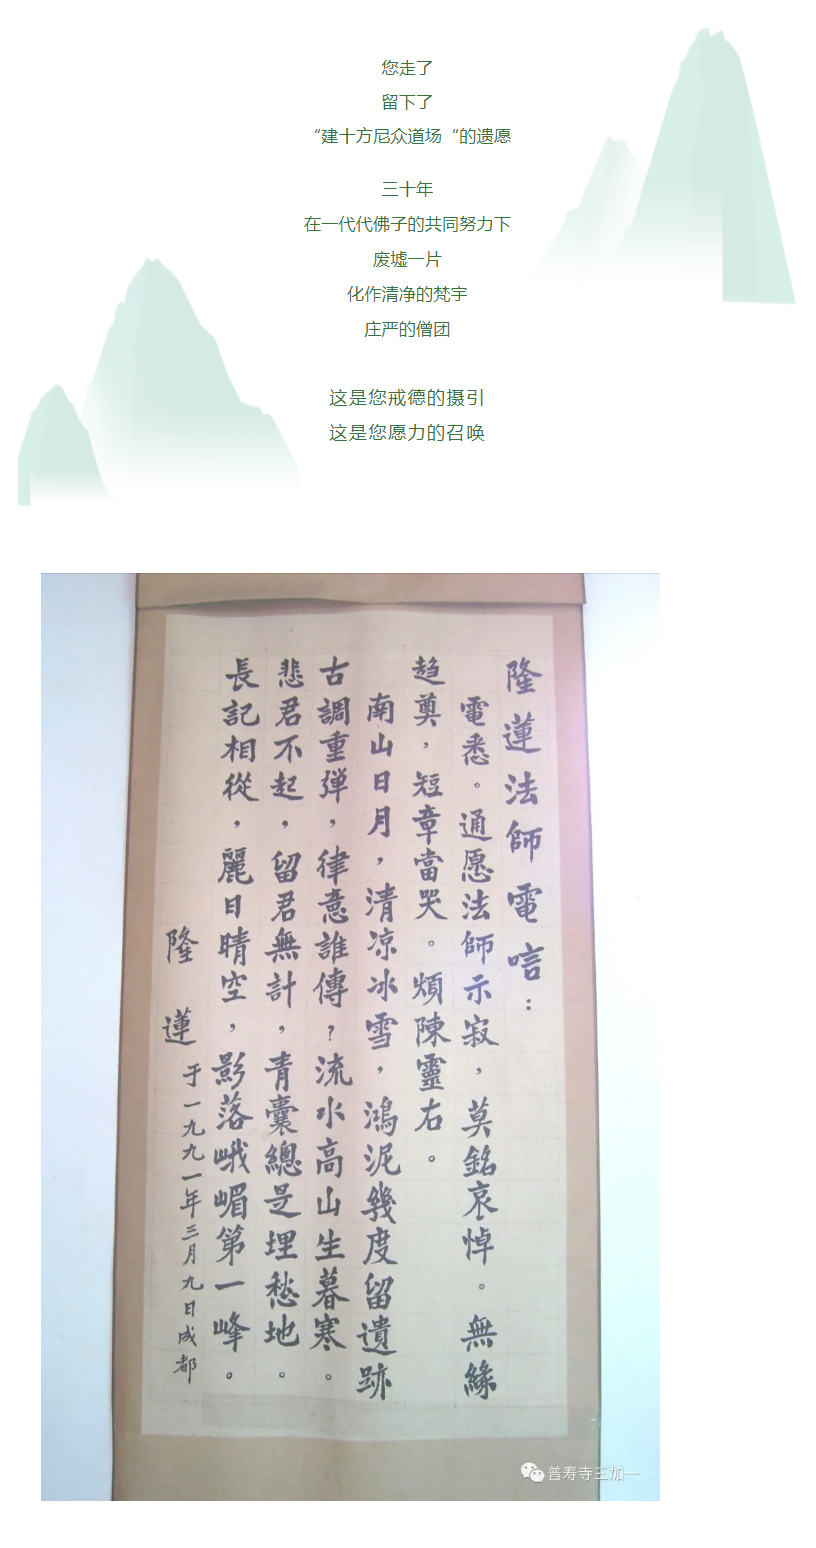 您走了
留下了
“建十方尼众道场“的遗愿
三十年
在一代代佛子的共同努力下
废墟一片
化作清净的梵宇
庄严的僧团
这是您戒德的摄引
这是您愿力的召唤
隆蓮法師電唁：
電悉。通愿法師示寂，莫銘哀悼。無緣
趋奠，短章當哭。煩陳靈右。
南山日月，清凉冰雪，鴻泥幾度留遺跡
古調重弹，律意誰傳？流水高山生暮寒。
悲君不起，留君無計，青囊總是埋愁地。
長記相從，麗日晴空，影落峨嵋第一峰。
隆蓮于一九九一年三月九日成都
普寿寺三加一